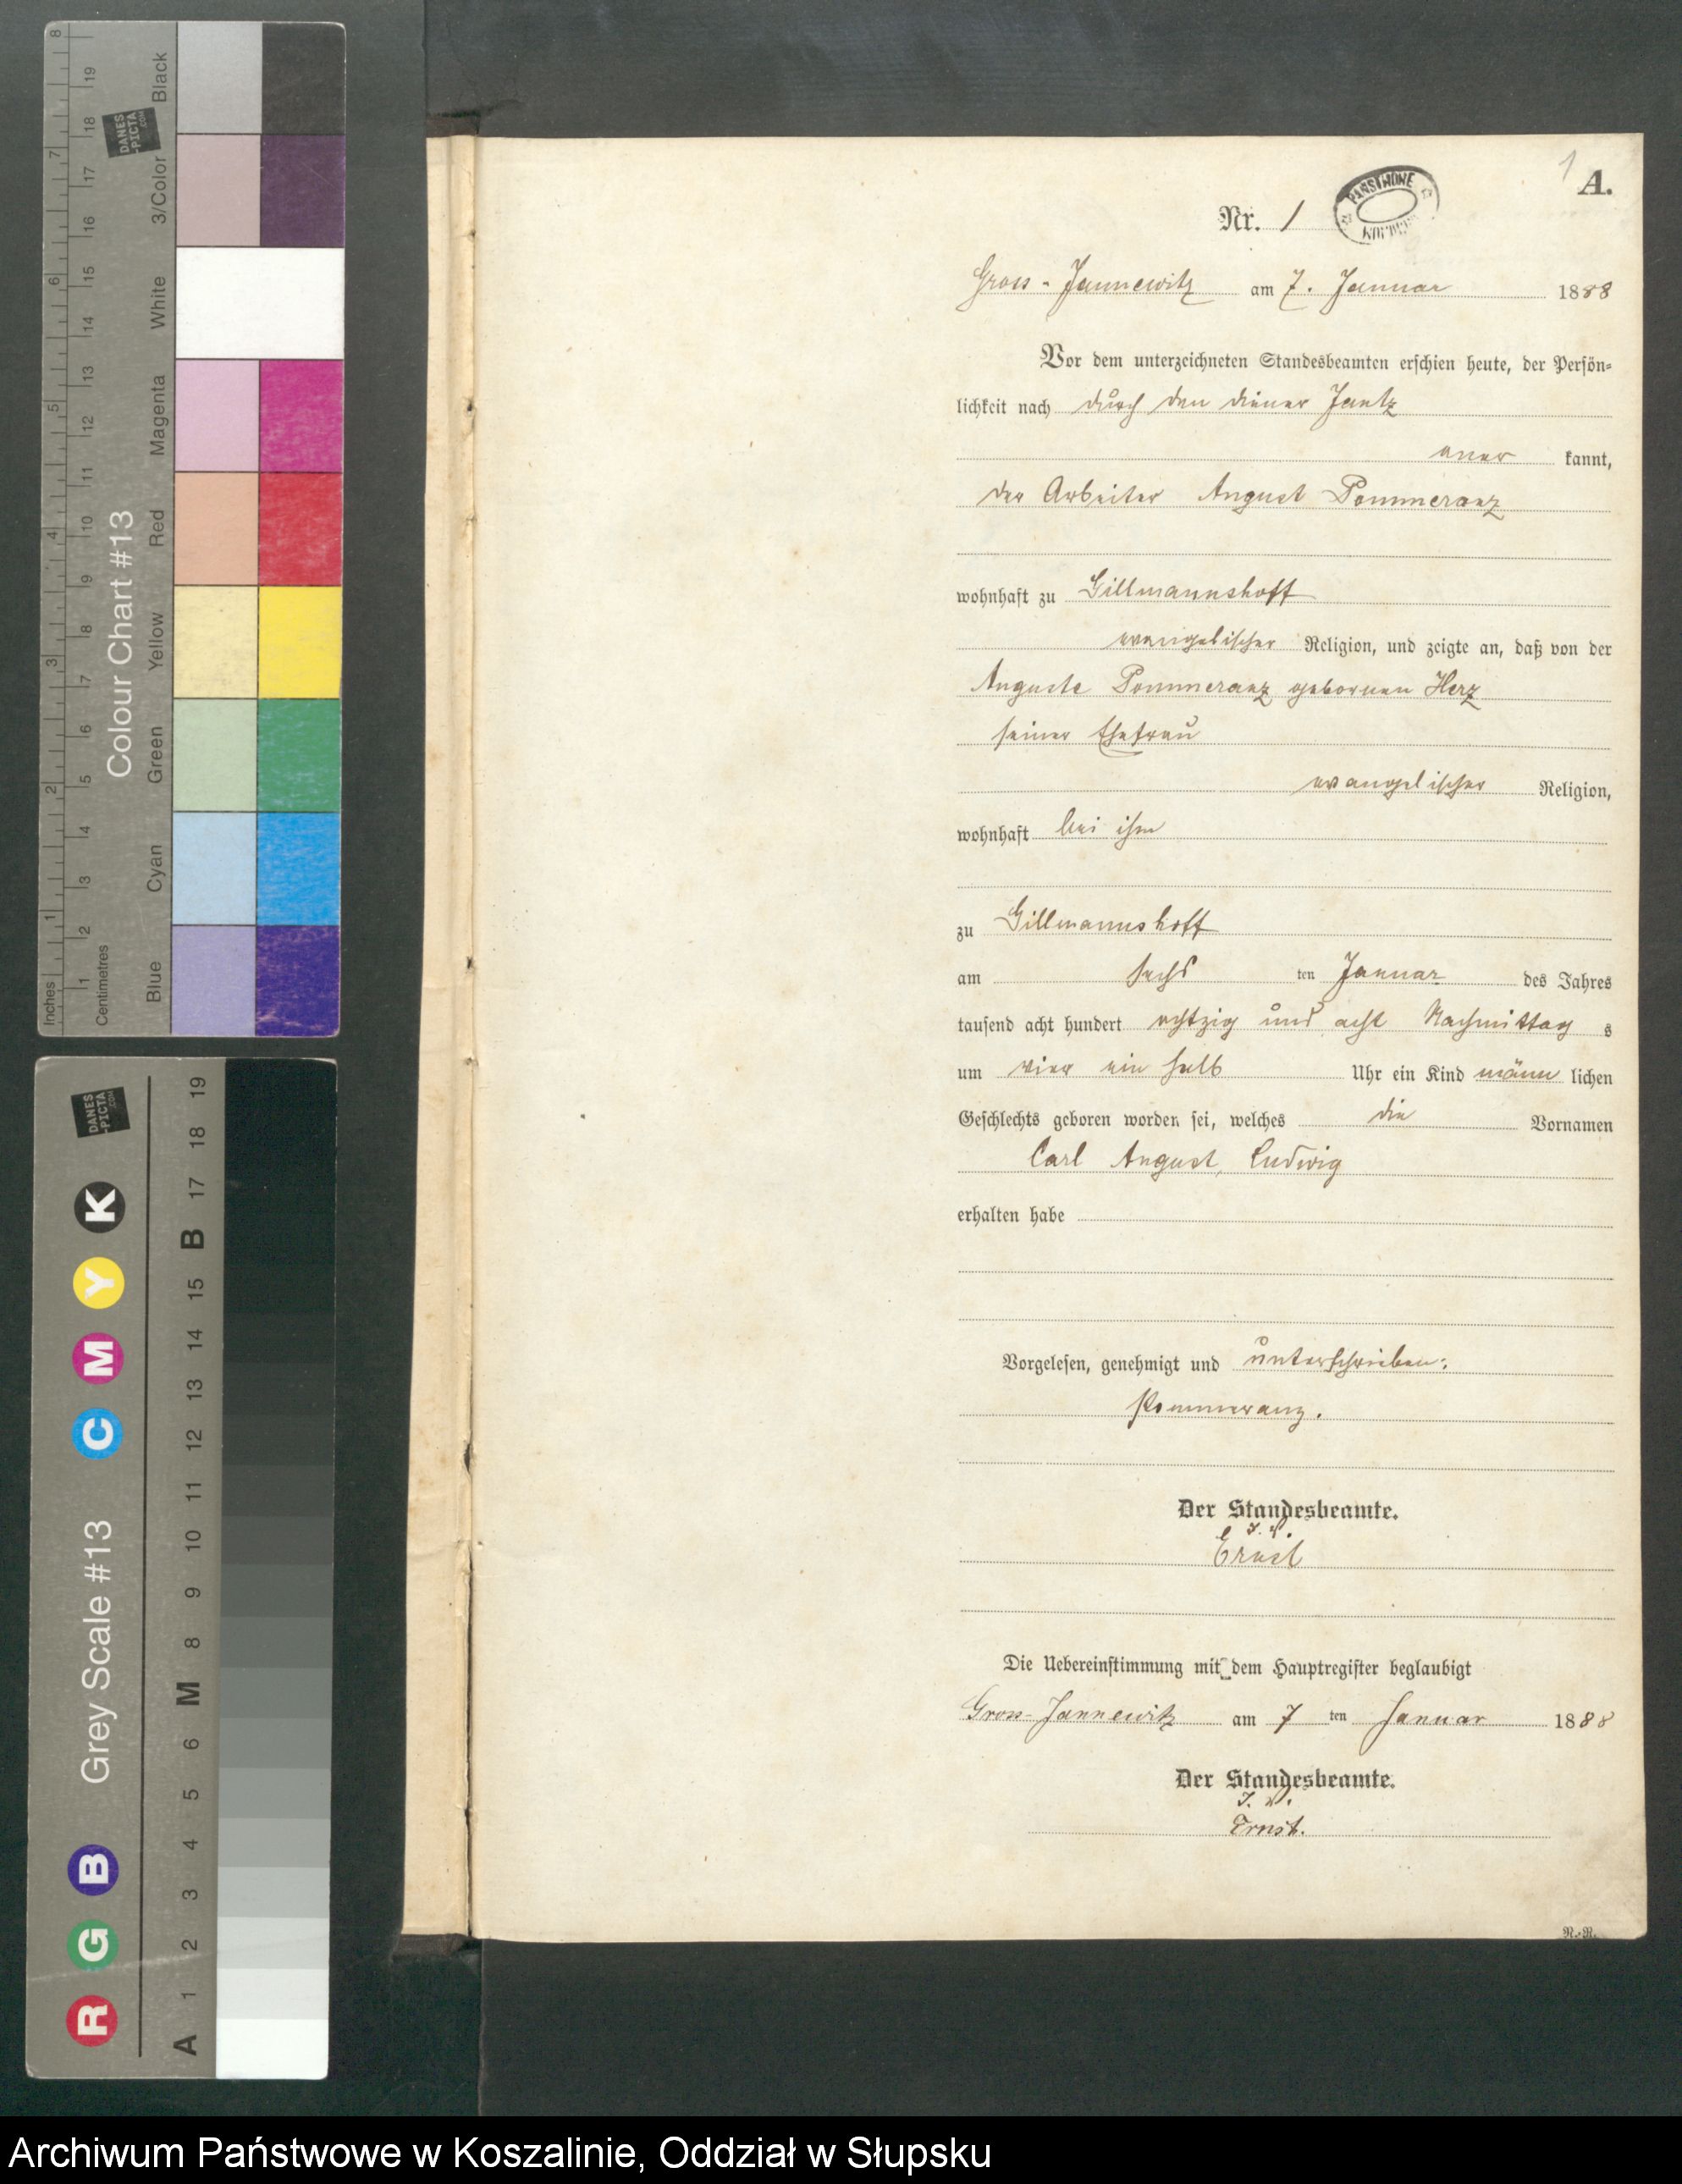 1
A.
Nr. 1
PAŃSTWOWE
Gross-Jannewitz am 7. Januar 1888
Vor dem unterzeichneten Standesbeamten erschien heute, der Persön-
lichkeit nach durch den Diener Jantz
aner kannt,
der Arbeiter August Pommeranz
wohnhaft zu Gillmannshoff
evangelischer Religion, und zeigte an, daß von der
Auguste Pommeranz geborenen Herz
seiner Ehefrau
evangelischer Religion,
wohnhaft bei ihm
zu Gillmannshoff
am sechs ten Januar des Jahres
tausend acht hundert achtzig und acht Nachmittag s
um vier ein halb Uhr ein Kind männ lichen
Geschlechts geboren worden sei, welches die Vornamen
Carl August, Ludwig
erhalten habe
Vorgelesen, genehmigt und unterschrieben:
Pommeranz.
Der Standesbeamte.
J. V.
Ernst
Die Uebereinstimmung mit dem Hauptregister beglaubigt
Gross-Jannewitz am 7 ten Januar 1888
Der Standesbeamte.
J. V.
Ernst.
N.-R.
Inches 1 2 3 4 5 6 7 8
Centimetres 1 2 3 4 5 6 7 8 9 10 11 12 13 14 15 16 17 18 19
Colour Chart #13
Blue Cyan Green Yellow Red Magenta White 3/Color Black
DANES
-PICTA
.COM
Grey Scale #13
R G B C M Y K
A 1 2 3 4 5 6 M 8 9 10 11 12 13 14 15 B 17 18 19
DANES
-PICTA
.COM
Archiwum Państwowe w Koszalinie, Oddział w Słupsku